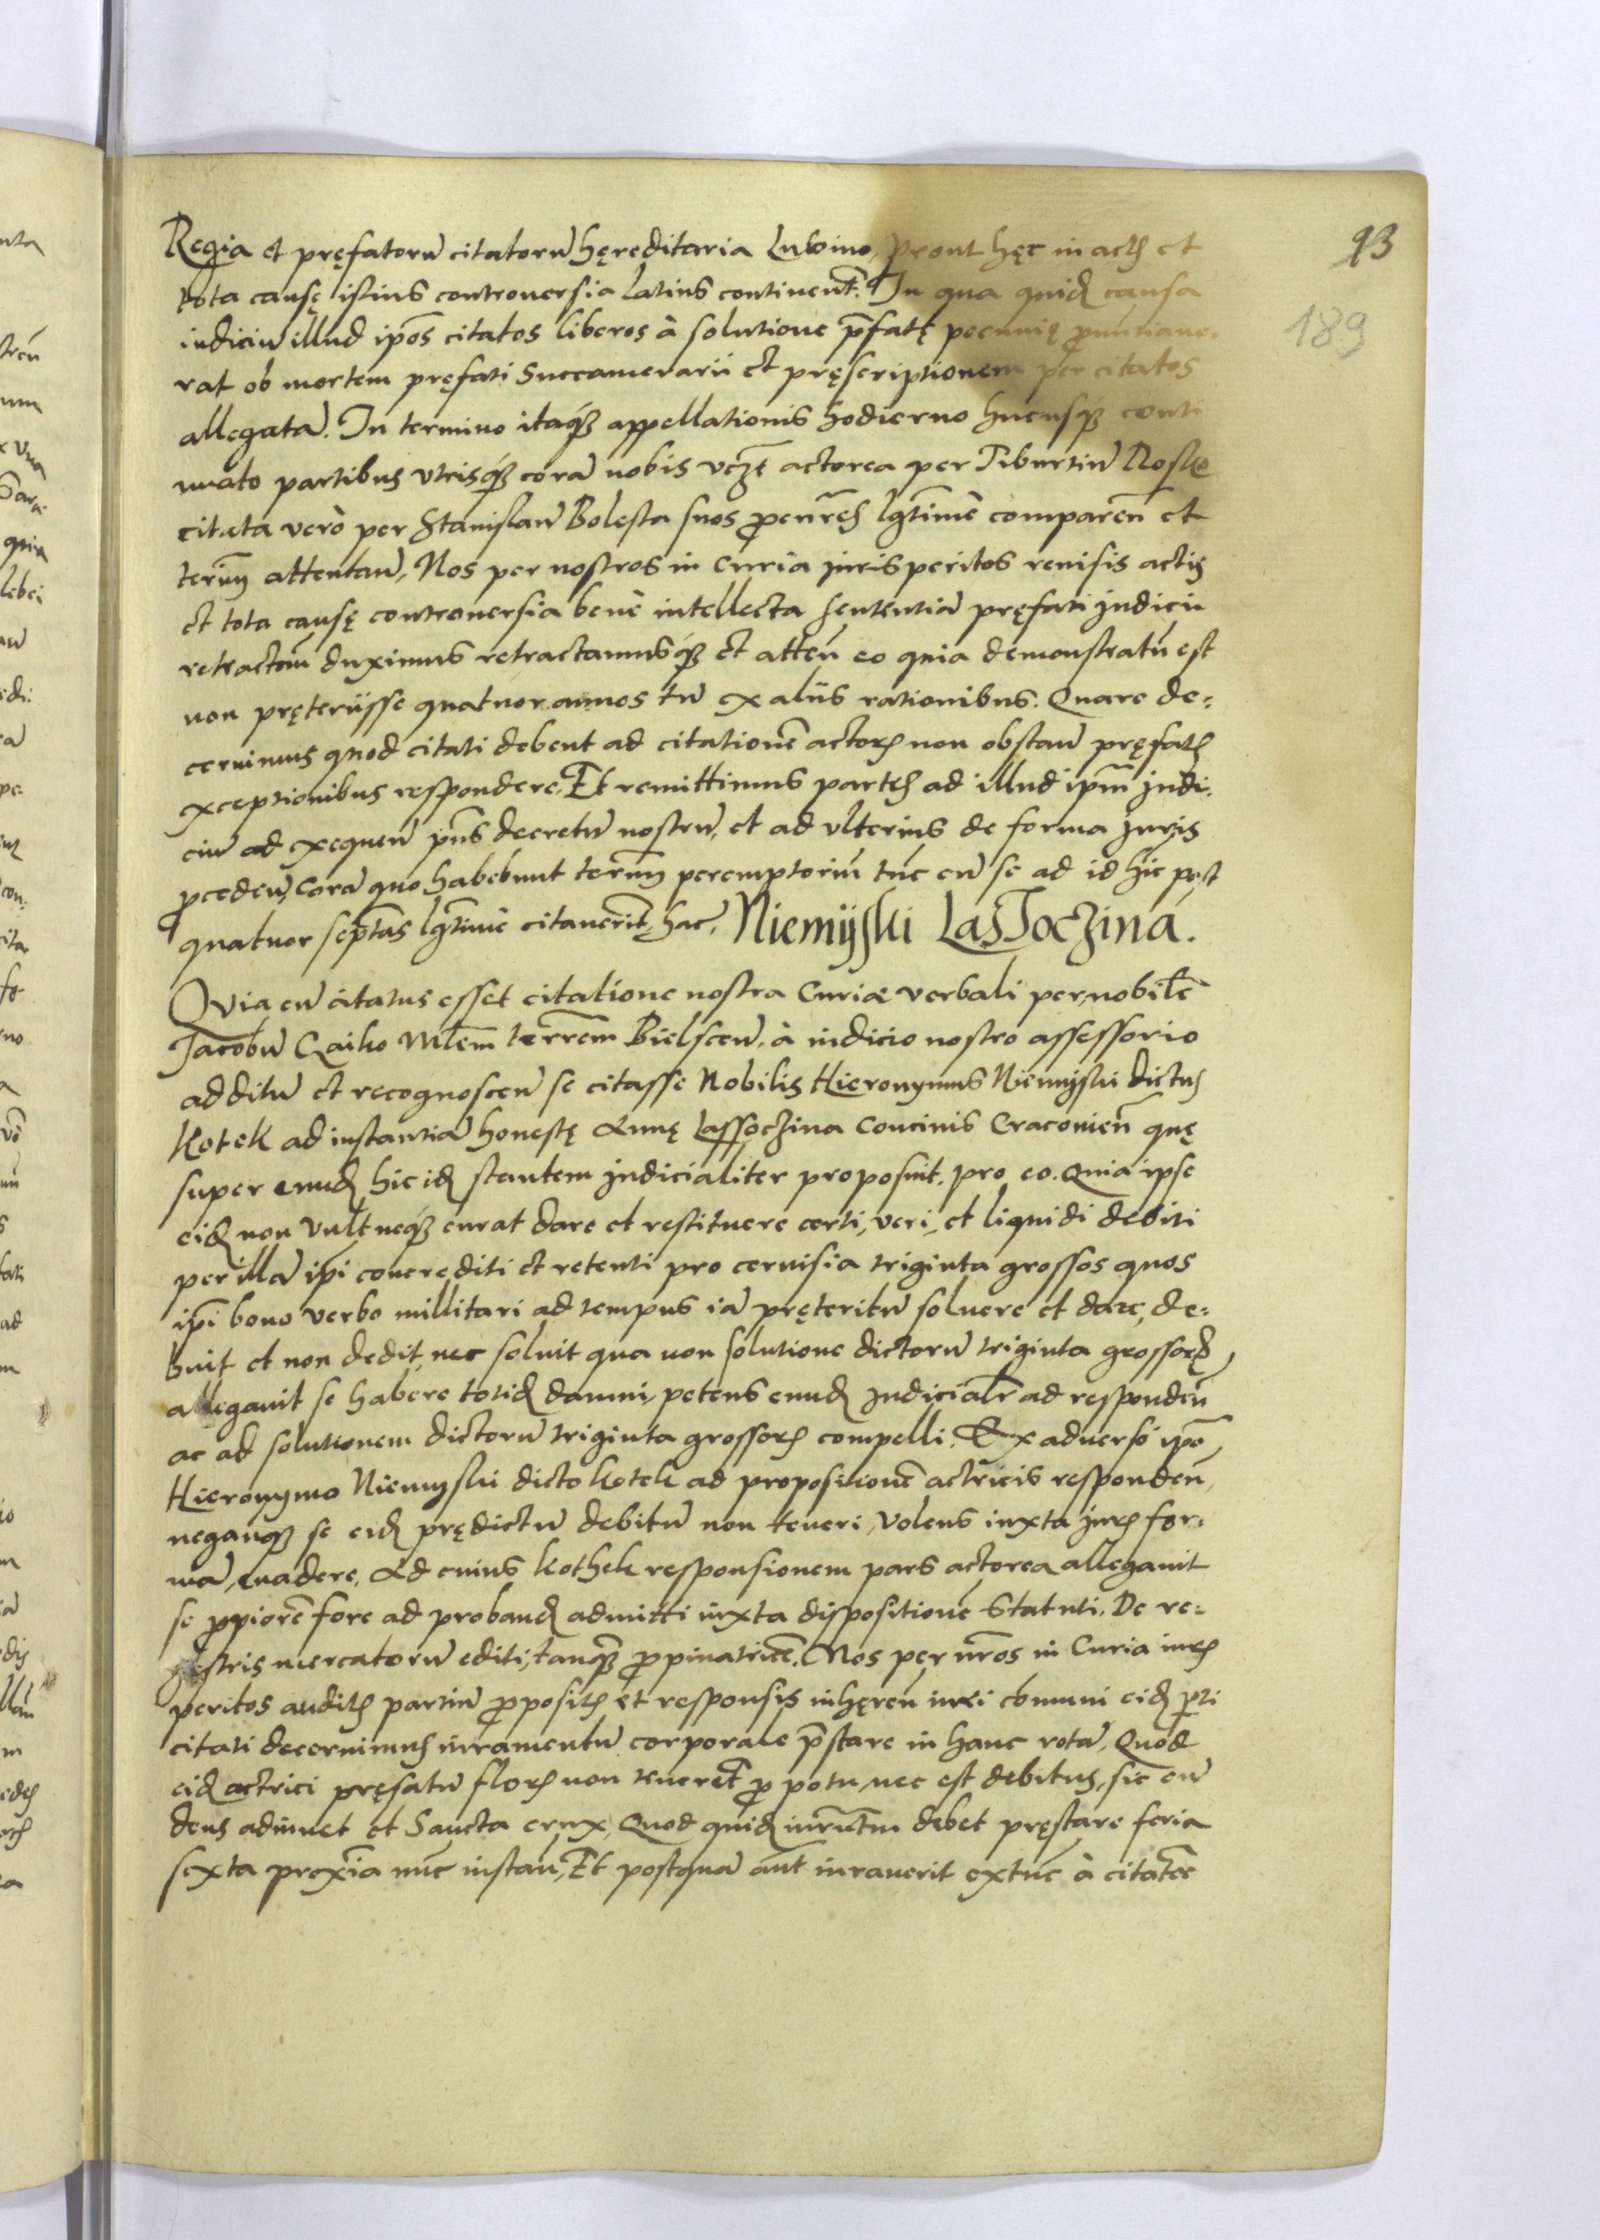 93
189
Regia et pręfatorū citatorū hęreditaria Luboino, prout hęc in actis et
tota causę istius controuersia latius continent̄. In qua quid̄ causa
iudiciū illud ip̄os citatos liberos à solutione p̄fatę pecunię pronuntiaue-
rat ob mortem pręfati Succamerarii et pręscriptionem per citatos
allegatā. In termino itaq́ appellationis hodierno hucusq́ conti
nuato partibus vtrisq́ corā nobis actorea per Tiburtiū Noskę
citata verò per Stanislaū Bolesta suos procur̄es lḡtimè comparen̄ et
term̄ attentan̄, Nos per nostros in Curia jurisperitos reuisis actis
et tota causę controuersia benè intellecta sententiā pręfati judicii
retractan̄ duximus retractamusq́ et atten̄ eo quia demonstratū est
non pręteriisse quatuor annos tū ex aliis rationibus. Quare de-
cernimus quod citati debent ad citationē actoris non obstan̄ pręfatis
exceptionibus respondere. Et remittimus partes ad illud ip̄m judi-
ciū ad exequen̄ pn̄s decretū nostrū, et ad vlterius de forma juris
proceden̄, Corā quo habebunt term̄ peremptoriū tūc cū se ad id hic post
quatuor sep̄tas lḡtimè citauerit, hac. Niemijski Lassoczina.
Quia cū citatus esset citatione nostra Curiæ verbali per nobilē
Jacobū Caiko Mlēm terrēm Bielscen̄. à iudicio nostro assessorio
additū et recognoscen̄ se citasse Nobilis Hieronymus Niemijski dictus
Kotek ad instantiā honestę Annę Lassoczina Conciuis Cracouien̄ quę
super eund̄ hic id̄ stantem judicialiter proposuit. pro eo. Quia ipse
eid̄ non vult neq́ curat dare et restituere certi, veri, et liquidi debiti
per illā ip̄i concrediti et retenti pro ceruisia triginta grossos quos
ip̄i bono verbo millitari ad tempus iā pręteritū soluere et dare, de-
buit et non dedit, nec soluit qua non solutione dictorū triginta grossor̄
allegauit se habere totid̄ damni, petens eund̄ judicialr̄ ad responden̄
ac ad solutionem dictorū triginta grossor̄ compelli. Ex aduerso ip̄o
Hieronymo Niemyski dicto Kotek ad propositionē actricis responden̄,
neganq́ se eid̄ prędictū debitū non teneri, volens iuxta juris for-
mā, euadere, Ad cuius Kothek responsionem pars actorea allegauit
se propiorē fore ad proband̄ admitti iuxta dispositionē Statuti. De re-
gestris mercatorū editi, tanq̄ propinatricē. Nos per nr̄os in Curia iuris
peritos auditis partiū propositis et responsis inhęren̄ iuri cōmuni eid̄ parti
citati decernimus iuramentū corporale p̄stare in hanc rotā, Quod
eid̄ actrici pręfatū flor̄ non teneret̄ pro potu, nec est debitus, sic eū
deus adiuuet et Sancta crux, Quod quid̄ iurn̄tum debet pręstare feria
sexta proxīa nūc instan̄, Et postquā aūt iurauerit extūc à citatōe